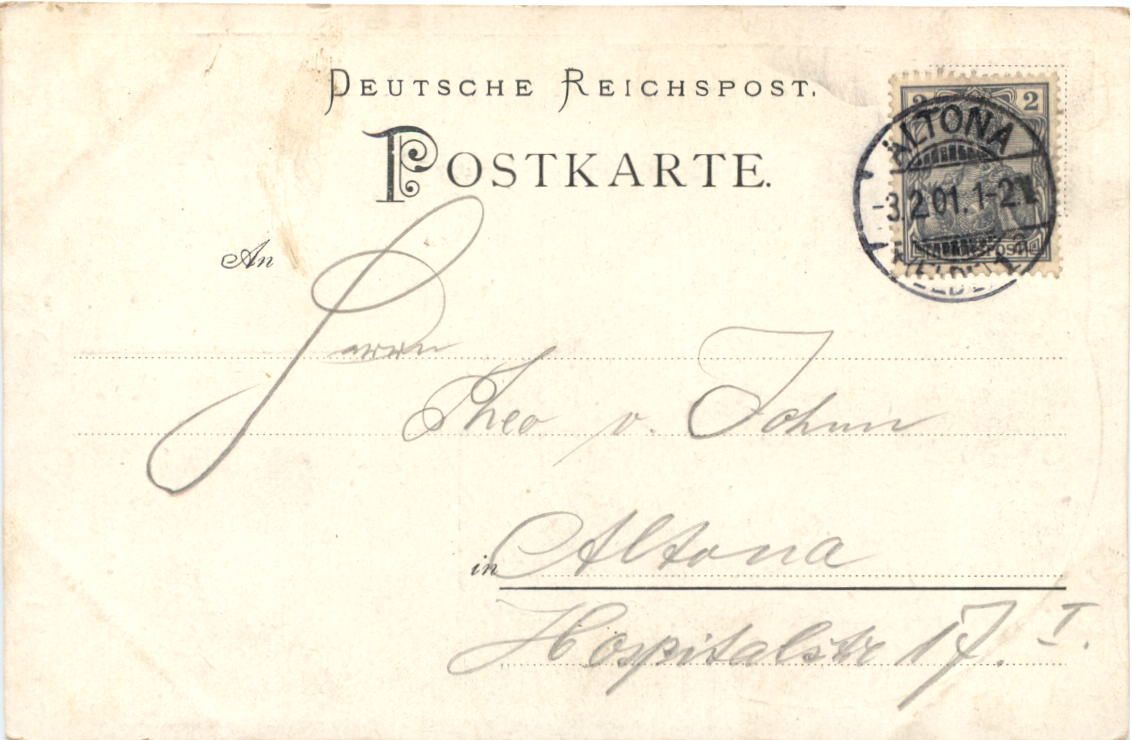 DEUTSCHE REICHSPOST.
POSTKARTE.
2 2
ALTONA
-3.2.01. 1-2N.
An
Herrn
Theo v.
in Altona
Hospitalstr 17. I.